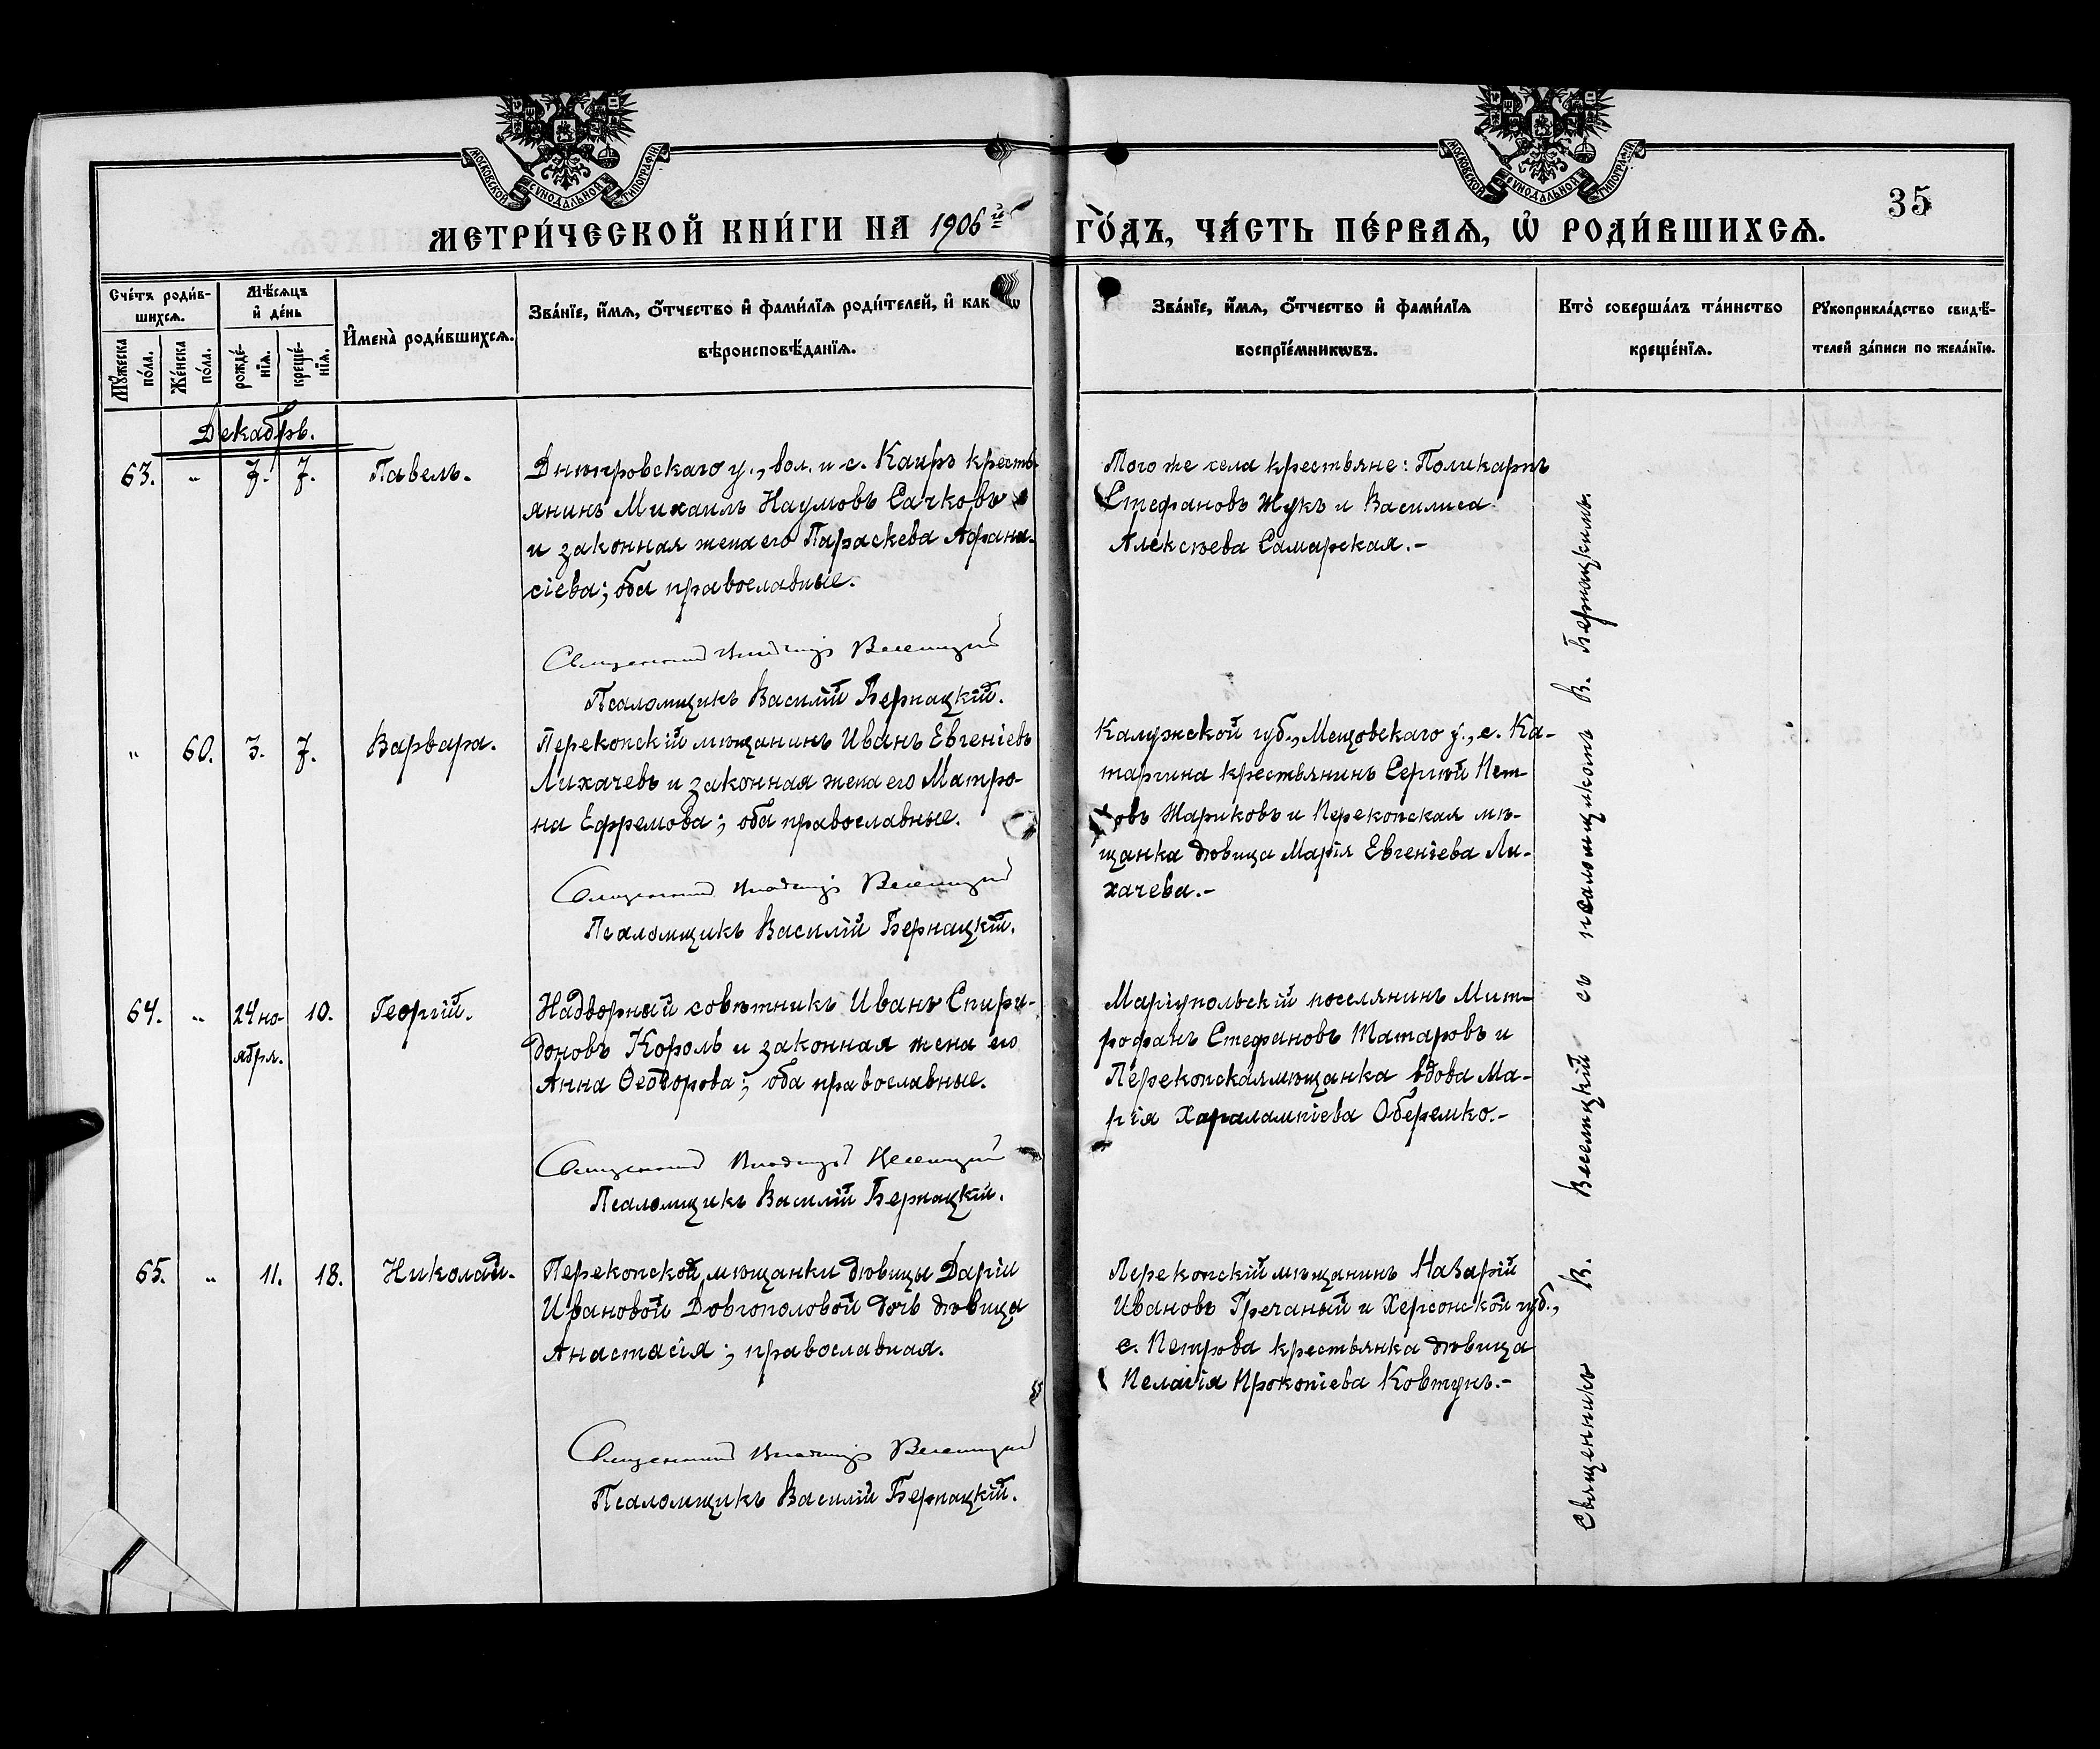 МОСКОВСКОЙ СѴНОДАЛЬНОЙ ТИПОГРАФІИ
МОСКОВСКОЙ СѴНОДАЛЬНОЙ ТИПОГРАФІИ
35
МЕТРИ́ЧЕСКОЙ КНИ́ГИ НА 1906й ГО́ДЪ, ЧА́СТЬ ПЕ́РВАѦ, Ѡ҆ РОДИ́ВШИХСѦ.
Сче́тъ роди́в-
шихсѧ.
Мꙋ́жеска
по́ла.
Же́нска
по́ла.
Мѣ́сѧцъ
и҆ де́нь
рожде́-
нїѧ.
креще́-
нїѧ.
И҆мена̀ роди́вшихсѧ.
Зва́нїе, и҆́мѧ, ѻ҆́тчество и҆ фами́лїѧ роди́телей, и҆ как
вѣроисповѣ́данїѧ.
Зва́нїе, и҆́мѧ, ѻ҆́тчество и҆ фами́лїѧ
воспрїе́мникѡвъ.
Кто̀ соверша́лъ та́инство
креще́нїѧ.
Рꙋкоприкла́дство свидѣ́-
телей за́писи по жела́нїю.
Декабрь.
63. „ 7. 7. Павелъ.
Днѣпровскаго у., вол. и с. Каиръ кресть-
янинъ Михаилъ Наумовъ Сачковъ
и законная жена его Параскева Афана-
сіева; оба православные.
Священникъ Владимір Веселицкій
Псаломщикъ Василій Бернацкій.
Того же села крестьяне: Поликарпъ
Стефановъ Жукъ и Василиса
Алексѣева Самарская.-
„ 60. 3. 7. Варвара.
Перекопскій мѣщанинъ Иванъ Евгеніевъ
Лихачевъ и законная жена его Матро-
на Ефремова; оба православные.
Священникъ Владимір Веселицкій
Псаломщикъ Василій Бернацкій.
Калужской губ., Мещовскаго у., с. Ка-
таргина крестьянинъ Сергѣй Пет-
ровъ Жариковъ и Перекопская мѣ-
щанка дѣвица Марія Евгеніева Ли-
хачева.-
64. „ 24 но- 10. Георгій.
ября.
Надворный совѣтникъ Иванъ Спири-
доновъ Король и законная жена его
Анна Ѳеодорова; оба православные.
Священникъ Владимір Веселицкій
Псаломщикъ Василій Бернацкій.
Маріупольскій поселянинъ Мит-
рофанъ Стефановъ Татаровъ и
Перекопская мѣщанка вдова Ма-
рія Харалампіева Оберемко.-
65. „ 11. 18. Николай.
Перекопской мѣщанки дѣвицы Даріи
Ивановой Довгополовой дочь дѣвица
Анастасія; православная.
Священникъ Владимір Веселицкій
Псаломщикъ Василій Бернацкій.
Перекопскій мѣщанинъ Назарій
Ивановъ Гречаный и Херсонской губ.,
с. Петрова крестьянка дѣвица
Пелагія Прокопіева Ковтунъ.-
Священникъ В. Веселицкій съ псаломщикомъ В. Бернацкимъ.